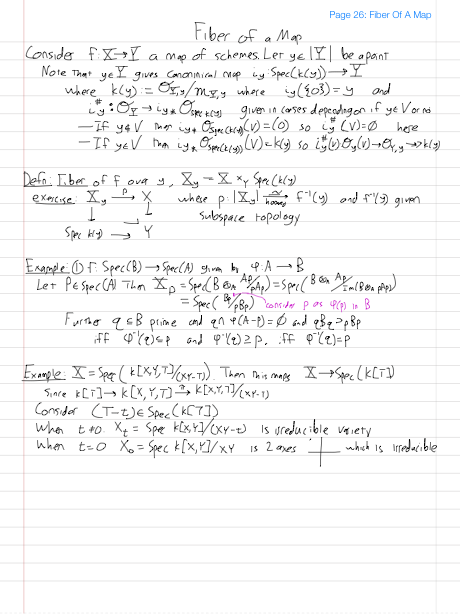 Page 26: Fiber Of A Map
Fiber of a Map
Consider f: X→Y a map of schemes. Let y∈|Y| be a point
Note that y∈Y gives canoninical map i_y: Spec(k(y)) → Y
where k(y) := O_{Y,y}/m_{Y,y} where i_y({0}) = y and
i_y^#: O_Y → i_{y*} O_{Spec k(y)} given in cases depending on if y∈V or no
— If y∉V then i_{y*} O_{Spec(k(y))}(V) = (0) so i_y^#(V) = 0 here
— If y∈V then i_{y*} O_{Spec(k(y))}(V) = k(y) so i_y^#(V): O_Y(V) → O_{Y,y} → k(y)
Defn: Fiber of f over y, X_y = X ×_Y Spec(k(y)
exercise: X_y →^p X where p: |X_y| →^~_{homeo} f^{-1}(y) and f^{-1}(y) given
↓ ↓ subspace topology
Spec k(y) → Y
Example: ① f: Spec(B) → Spec(A) given by φ: A → B
Let P∈Spec(A) Then X_p = Spec(B ⊗_A A_p/pA_p) = Spec(B ⊗_A A_p/Im(B ⊗_A pA_p))
= Spec(B_p/pB_p) consider p as φ(p) in B
Further q ⊆ B prime and q ∩ φ(A-p) = ∅ and qB_q ⊇ pB_p
iff φ^{-1}(q) ⊆ p and φ^{-1}(q) ⊇ p, iff φ^{-1}(q) = p
Example: X = Spec(k[X,Y,T]/(XY-T)). Then this maps X → Spec(k[T])
Since k[T] → k[X,Y,T] →^π k[X,Y,T]/(XY-T)
Consider (T-t) ∈ Spec(k[T])
When t≠0. X_t = Spec k[X,Y]/(XY-t) is irreducible variety
When t=0 X_0 = Spec k[X,Y]/XY is 2 axes which is irreducible